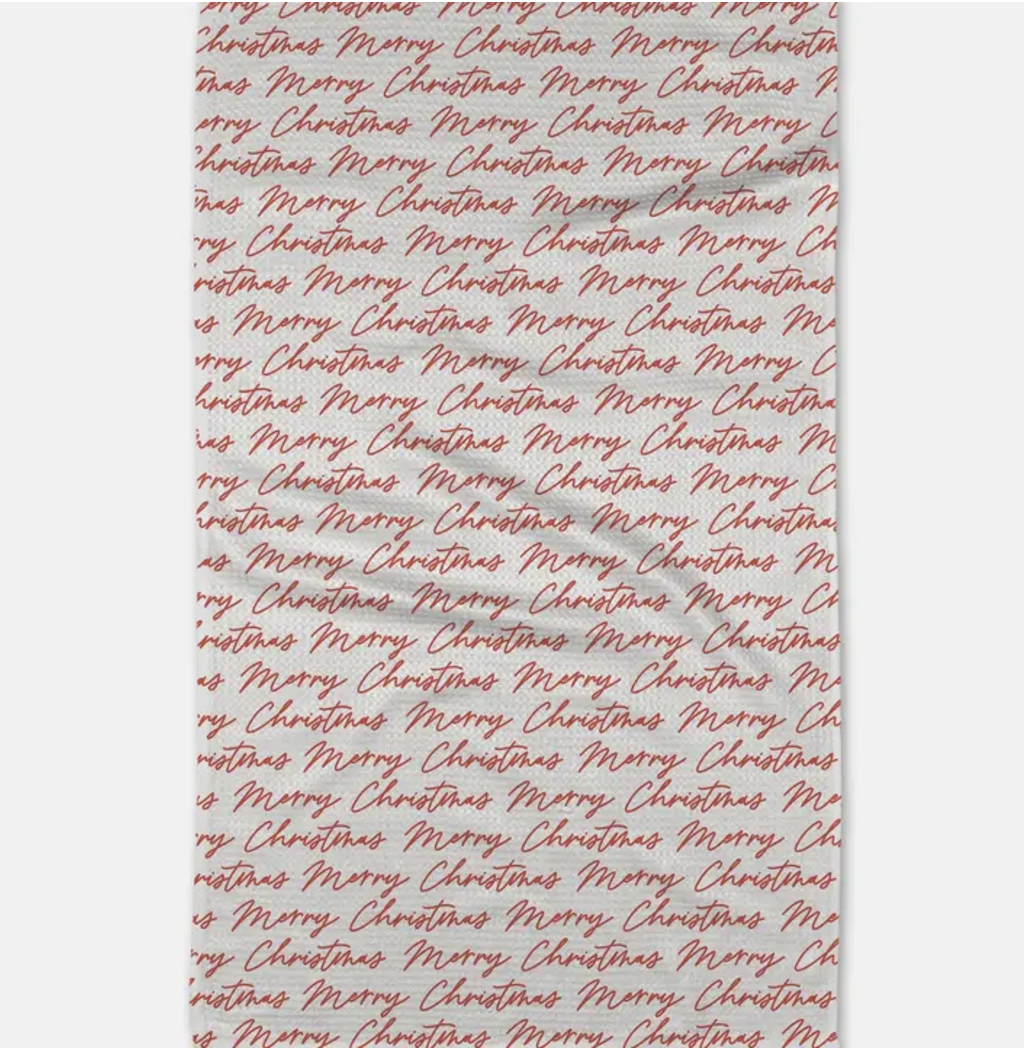 erry Christmas Merry Christmas Merry C
Christmas Merry Christmas Merry Christm
tmas Merry Christmas Merry Christmas M
erry Christmas Merry Christmas Merry C
Christmas Merry Christmas Merry Christma
mas Merry Christmas Merry Christmas M
rry Christmas Merry Christmas Merry Ch
ristmas Merry Christmas Merry Christmas
as Merry Christmas Merry Christmas Me
erry Christmas Merry Christmas Merry C
hristmas Merry Christmas Merry Christma
mas Merry Christmas Merry Christmas M
rry Christmas Merry Christmas Merry C
hristmas Merry Christmas Merry Christma
as Merry Christmas Merry Christmas M
rry Christmas Merry Christmas Merry Ch
ristmas Merry Christmas Merry Christmas
as Merry Christmas Merry Christmas Me
ry Christmas Merry Christmas Merry Ch
ristmas Merry Christmas Merry Christmas
as Merry Christmas Merry Christmas Me
ry Christmas Merry Christmas Merry Ch
ristmas Merry Christmas Merry Christmas
as Merry Christmas Merry Christmas Me
rry Christmas Merry Christmas Merry Ch
ristmas Merry Christmas Merry Christmas
as Merry Christmas Merry Christmas Me